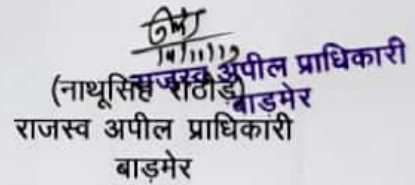 राजस्व अपील प्राधिकारी
बाड़मेर
(नाथूसिंह राठौड़)
राजस्व अपील प्राधिकारी
बाड़मेर